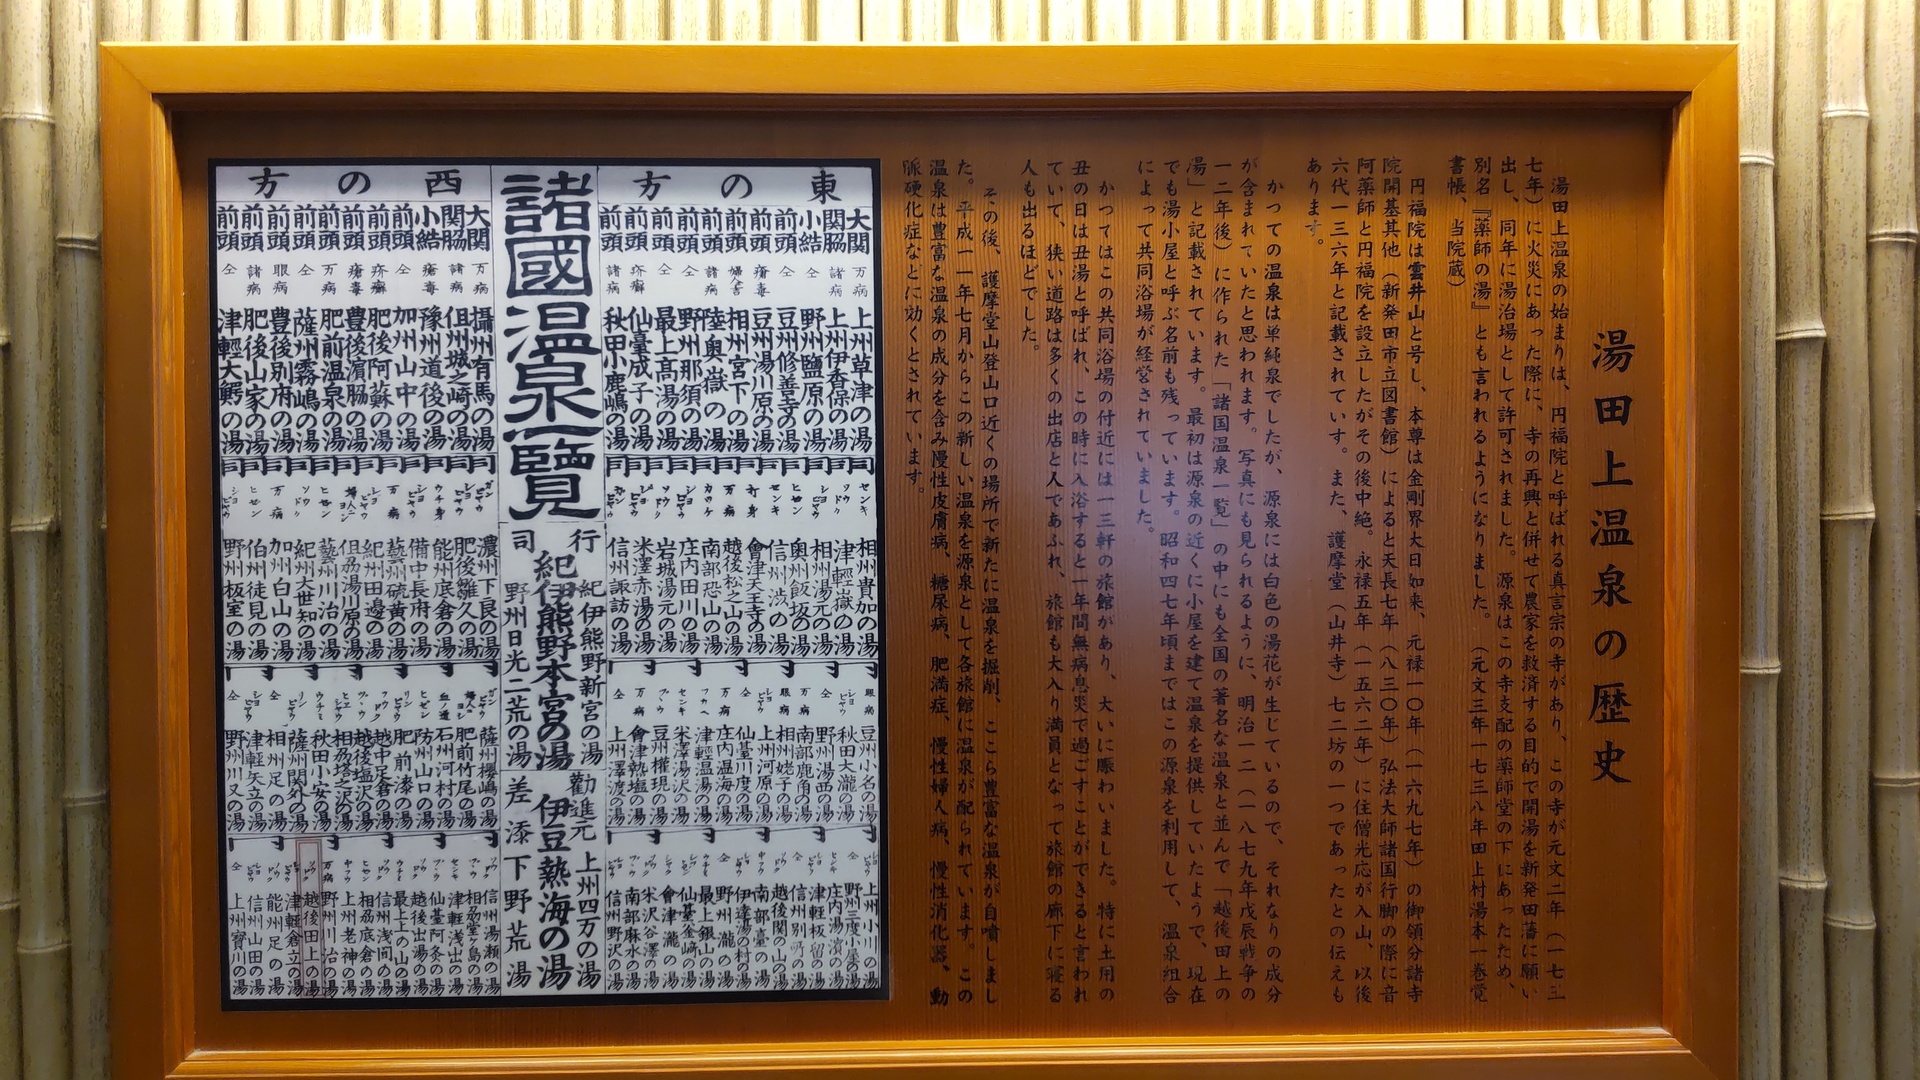 湯田上温泉の歴史
湯田上温泉の始まりは、円福院と呼ばれる真言宗の寺があり、この寺が元文二年（一七三
七年）に火災にあった際に、寺の再興と併せて農家を救済する目的で開湯を新発田藩に願い
出し、同年に湯治場として許可されました。源泉はこの寺支配の薬師堂の下にあったため、
別名『薬師の湯』とも言われるようになりました。（元文三年一七三八年田上村湯本一巻覚
書帳、当院蔵）
円福院は雲井山と号し、本尊は金剛界大日如来、元禄一〇年（一六九七年）の御領分諸寺
院開基其他（新発田市立図書館）によると天長七年（八三〇年）弘法大師諸国行脚の際に音
阿薬師と円福院を設立したがその後中絶。永禄五年（一五六二年）に住僧光応が入山、以後
六代一三六年と記載されています。また、護摩堂（山井寺）七二坊の一つであったとの伝えも
あります。
かつての温泉は単純泉でしたが、源泉には白色の湯花が生じているので、それなりの成分
が含まれていたと思われます。写真にも見られるように、明治一二（一八七九年戊辰戦争の
一二年後）に作られた「諸国温泉一覧」の中にも全国の著名な温泉と並んで「越後田上の
湯」と記載されています。最初は源泉の近くに小屋を建て温泉を提供していたようで、現在
でも湯小屋と呼ぶ名前も残っています。昭和四七年頃まではこの源泉を利用して、温泉組合
によって共同浴場が経営されていました。
かつてはこの共同浴場の付近には一三軒の旅館があり、大いに賑わいました。特に土用の
丑の日は丑湯と呼ばれ、この時に入浴すると一年間無病息災で過ごすことができると言われ
ていて、狭い道路は多くの出店と人であふれ、旅館も大入り満員となって旅館の廊下に寝る
人も出るほどでした。
その後、護摩堂山登山口近くの場所で新たに温泉を掘削、ここら豊富な温泉が自噴しまし
た。平成一一年七月からこの新しい温泉を源泉として各旅館に温泉が配られています。この
温泉は豊富な温泉の成分を含み慢性皮膚病、糖尿病、肥満症、慢性婦人病、慢性消化器、動
脈硬化症などに効くとされています。
東の方
大関 万病 上州草津の湯
関脇 諸病 上州伊香保の湯
小結 仝 野州鹽原の湯
前頭 仝 豆州修善寺の湯
前頭 瘡毒 豆州湯川原の湯
前頭 相州宮下の湯
前頭 諸病 陸奥嶽の湯
前頭 仝 野州那須の湯
前頭 仝 最上高湯の湯
前頭 疥癬 仙臺成子の湯
前頭 諸病 秋田小鹿嶋の湯
同 センキ 相州貴加の湯
同 津輕嶽の湯
同 ヒゼン 相州湯元の湯
同 奥州飯坂の湯
同 信州渋の湯
同 會津天王寺の湯
同 万病 越後松之山の湯
同 カッケ 南部恐山の湯
同 庄内田川の湯
同 岩城湯元の湯
同 米澤赤湯の湯
同 信州諏訪の湯
眼病 豆州小名の湯
秋田大瀧の湯
仝 野州湯西の湯
万病 南部鹿角の湯
眼病 相州姥子の湯
上州河原の湯
仝 仙臺川度の湯
万病 庄内温海の湯
津輕温湯の湯
センキ 米澤湯沢の湯
豆州權現の湯
万病 會津熱塩の湯
仝 上州澤渡の湯
上州小川の湯
仝 野州三度小屋の湯
庄内湯濱の湯
津輕板留の湯
信州別所の湯
越後関の山の湯
南部臺の湯
伊達湯の村の湯
野州瀧の湯
最上銀山の湯
仙臺釜崎の湯
會津瀧の湯
米沢谷澤の湯
南部麻水の湯
信州野沢の湯
諸國温泉一覧
行司
紀伊熊野新宮の湯
紀伊熊野本宮の湯
野州日光二荒の湯
勧進元
上州四万の湯
伊豆熱海の湯
差添
下野荒湯
西の方
大関 万病 攝州有馬の湯
関脇 諸病 但州城之崎の湯
小結 瘡毒 豫州道後の湯
前頭 仝 加州山中の湯
前頭 疥癬 肥後阿蘇の湯
前頭 瘡毒 豊後濱脇の湯
前頭 万病 肥前温泉の湯
前頭 仝 薩州霧嶋の湯
前頭 眼病 豊後別府の湯
前頭 諸病 肥後山家の湯
前頭 仝 津輕大鰐の湯
同 濃州下良の湯
同 肥後雛久の湯
同 ウチ身 能州底倉の湯
同 備中長府の湯
同 万病 藝州硫黄の湯
同 紀州田邊の湯
同 但馬湯川原の湯
同 藝州川治の湯
同 紀州大世知の湯
同 万病 加州白山の湯
同 ヒゼン 伯州徒見の湯
同 野州板室の湯
薩州櫻嶋の湯
肥前竹尾の湯
石州河村の湯
ヒゼン 防州山口の湯
肥前漆の湯
越中足倉の湯
越後塩沢の湯
相州塔之沢の湯
ウチミ 秋田小安の湯
薩州関外の湯
仝 相州足の湯
津軽矢立の湯
仝 野州川又の湯
信州湯瀬の湯
相州堂ヶ島の湯
センキ 津輕浅出の湯
仙臺阿冬の湯
越後出湯の湯
最上上の山の湯
信州浅間の湯
相州底倉の湯
上州老神の湯
万病 野州川治の湯
ソウドク 越後田上の湯
津輕倉立の湯
能州足の湯
信州山田の湯
仝 上州寳川の湯